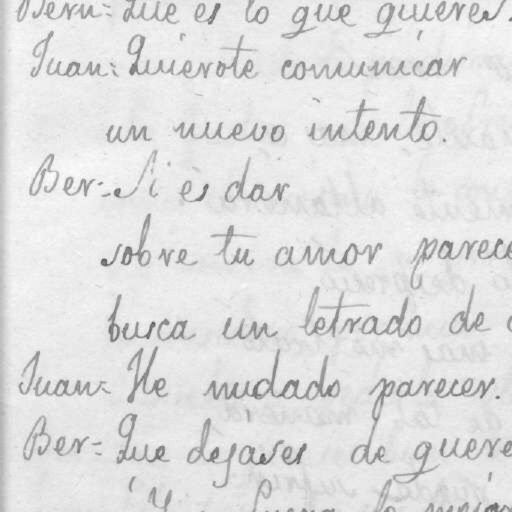 Bern= Que es lo que quieres.
Juan= Quierote comunicar
un nuevo intento.
Ber= Si es dar
sobre tu amor parece
busca un letrado de
Juan= He mudado parecer.
Ber= Que dejases de quere